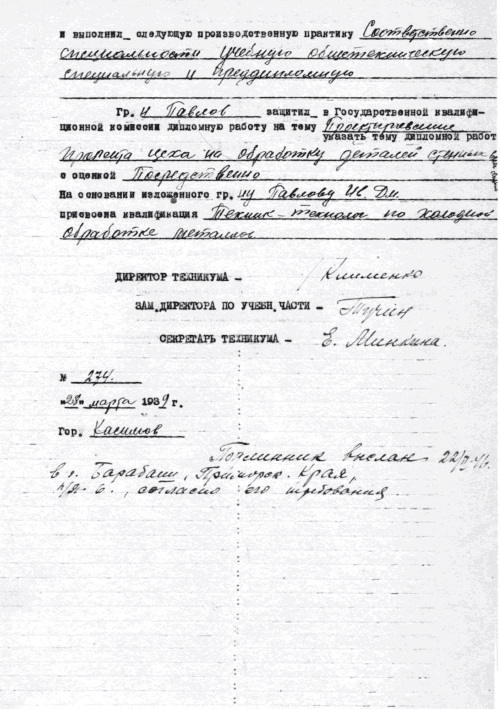 и выполнил_ следующую производственную практику Соответственно
специальности учебную общетехническую
специальную и преддипломную
Гр. н Павлов защитил_ в Государственной квалифи-
ционной комиссии дипломную работу на тему
указать тему дипломной работ
цеха на обработку деталей
с оценкой Посредственно
На основании изложенного гр. ну Павлову Ив. Дм.
присвоена квалификация Техник-технолог по холодной
обработке металлов
ДИРЕКТОР ТЕХНИКУМА – Клименко
ЗАМ.ДИРЕКТОРА ПО УЧЕБН.ЧАСТИ –
СЕКРЕТАРЬ ТЕХНИКУМА – Е. Минкина.
№ 274.
"28" марта 1939 г.
Гор. Касимов
выслан
в п. Барабаш, Приморск. Края,
п/я 6., согласно его требования